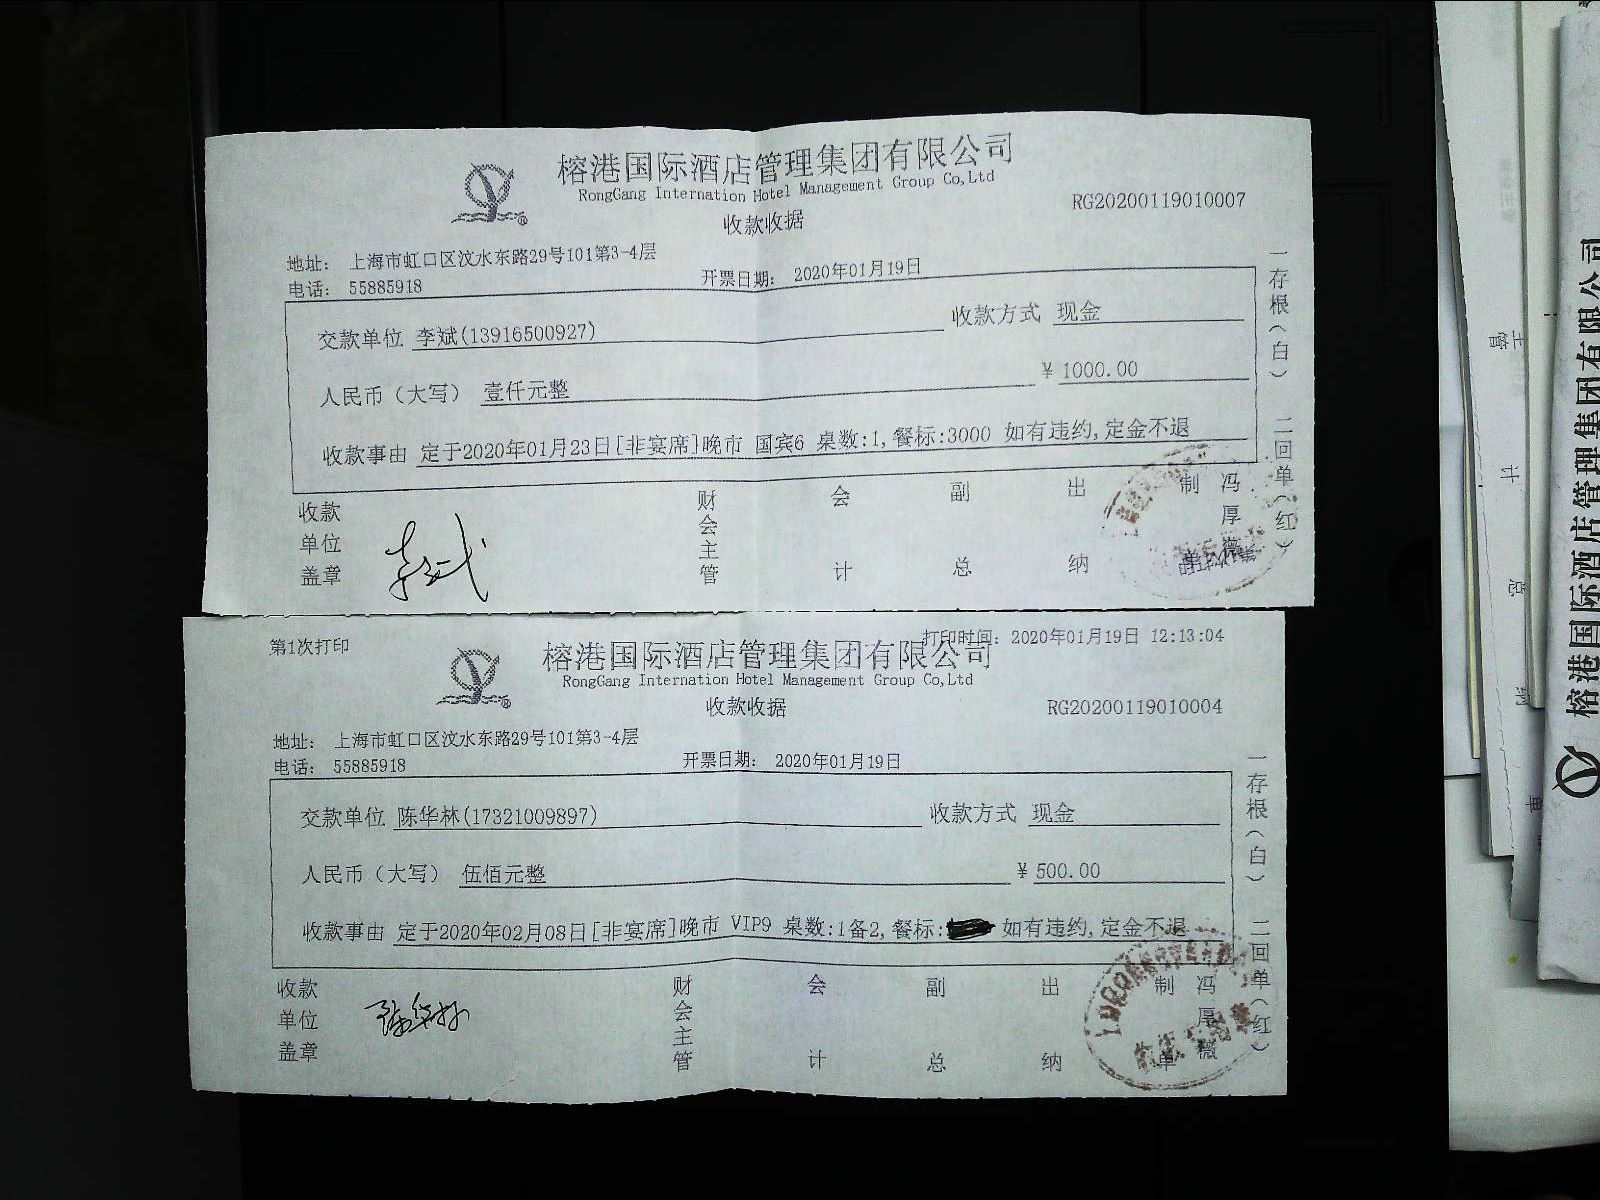 榕港国际酒店管理集团有限公司
RongGang Internation Hotel Management Group Co,Ltd
收款收据
RG20200119010007
地址: 上海市虹口区汶水东路29号101第3-4层
电话: 55885918
开票日期: 2020年01月19日
交款单位 李斌(13916500927)
收款方式 现金
人民币（大写） 壹仟元整
¥ 1000.00
收款事由 定于2020年01月23日[非宴席]晚市 国宾6 桌数:1,餐标:3000 如有违约,定金不退
一存根（白） 二回单（红）
收款单位盖章
李斌
财会主管
会计
副总
出纳
制单
冯厚薇
第1次打印
打印时间: 2020年01月19日 12:13:04
榕港国际酒店管理集团有限公司
RongGang Internation Hotel Management Group Co,Ltd
收款收据
RG20200119010004
地址: 上海市虹口区汶水东路29号101第3-4层
电话: 55885918
开票日期: 2020年01月19日
交款单位 陈华林(17321009897)
收款方式 现金
人民币（大写） 伍佰元整
¥ 500.00
收款事由 定于2020年02月08日[非宴席]晚市 VIP9 桌数:1备2,餐标: 如有违约,定金不退
一存根（白） 二回单（红）
收款单位盖章
陈华林
财会主管
会计
副总
出纳
制单
冯厚薇
榕港国际酒店管理集团有限公司
主管
计
总
纳
单